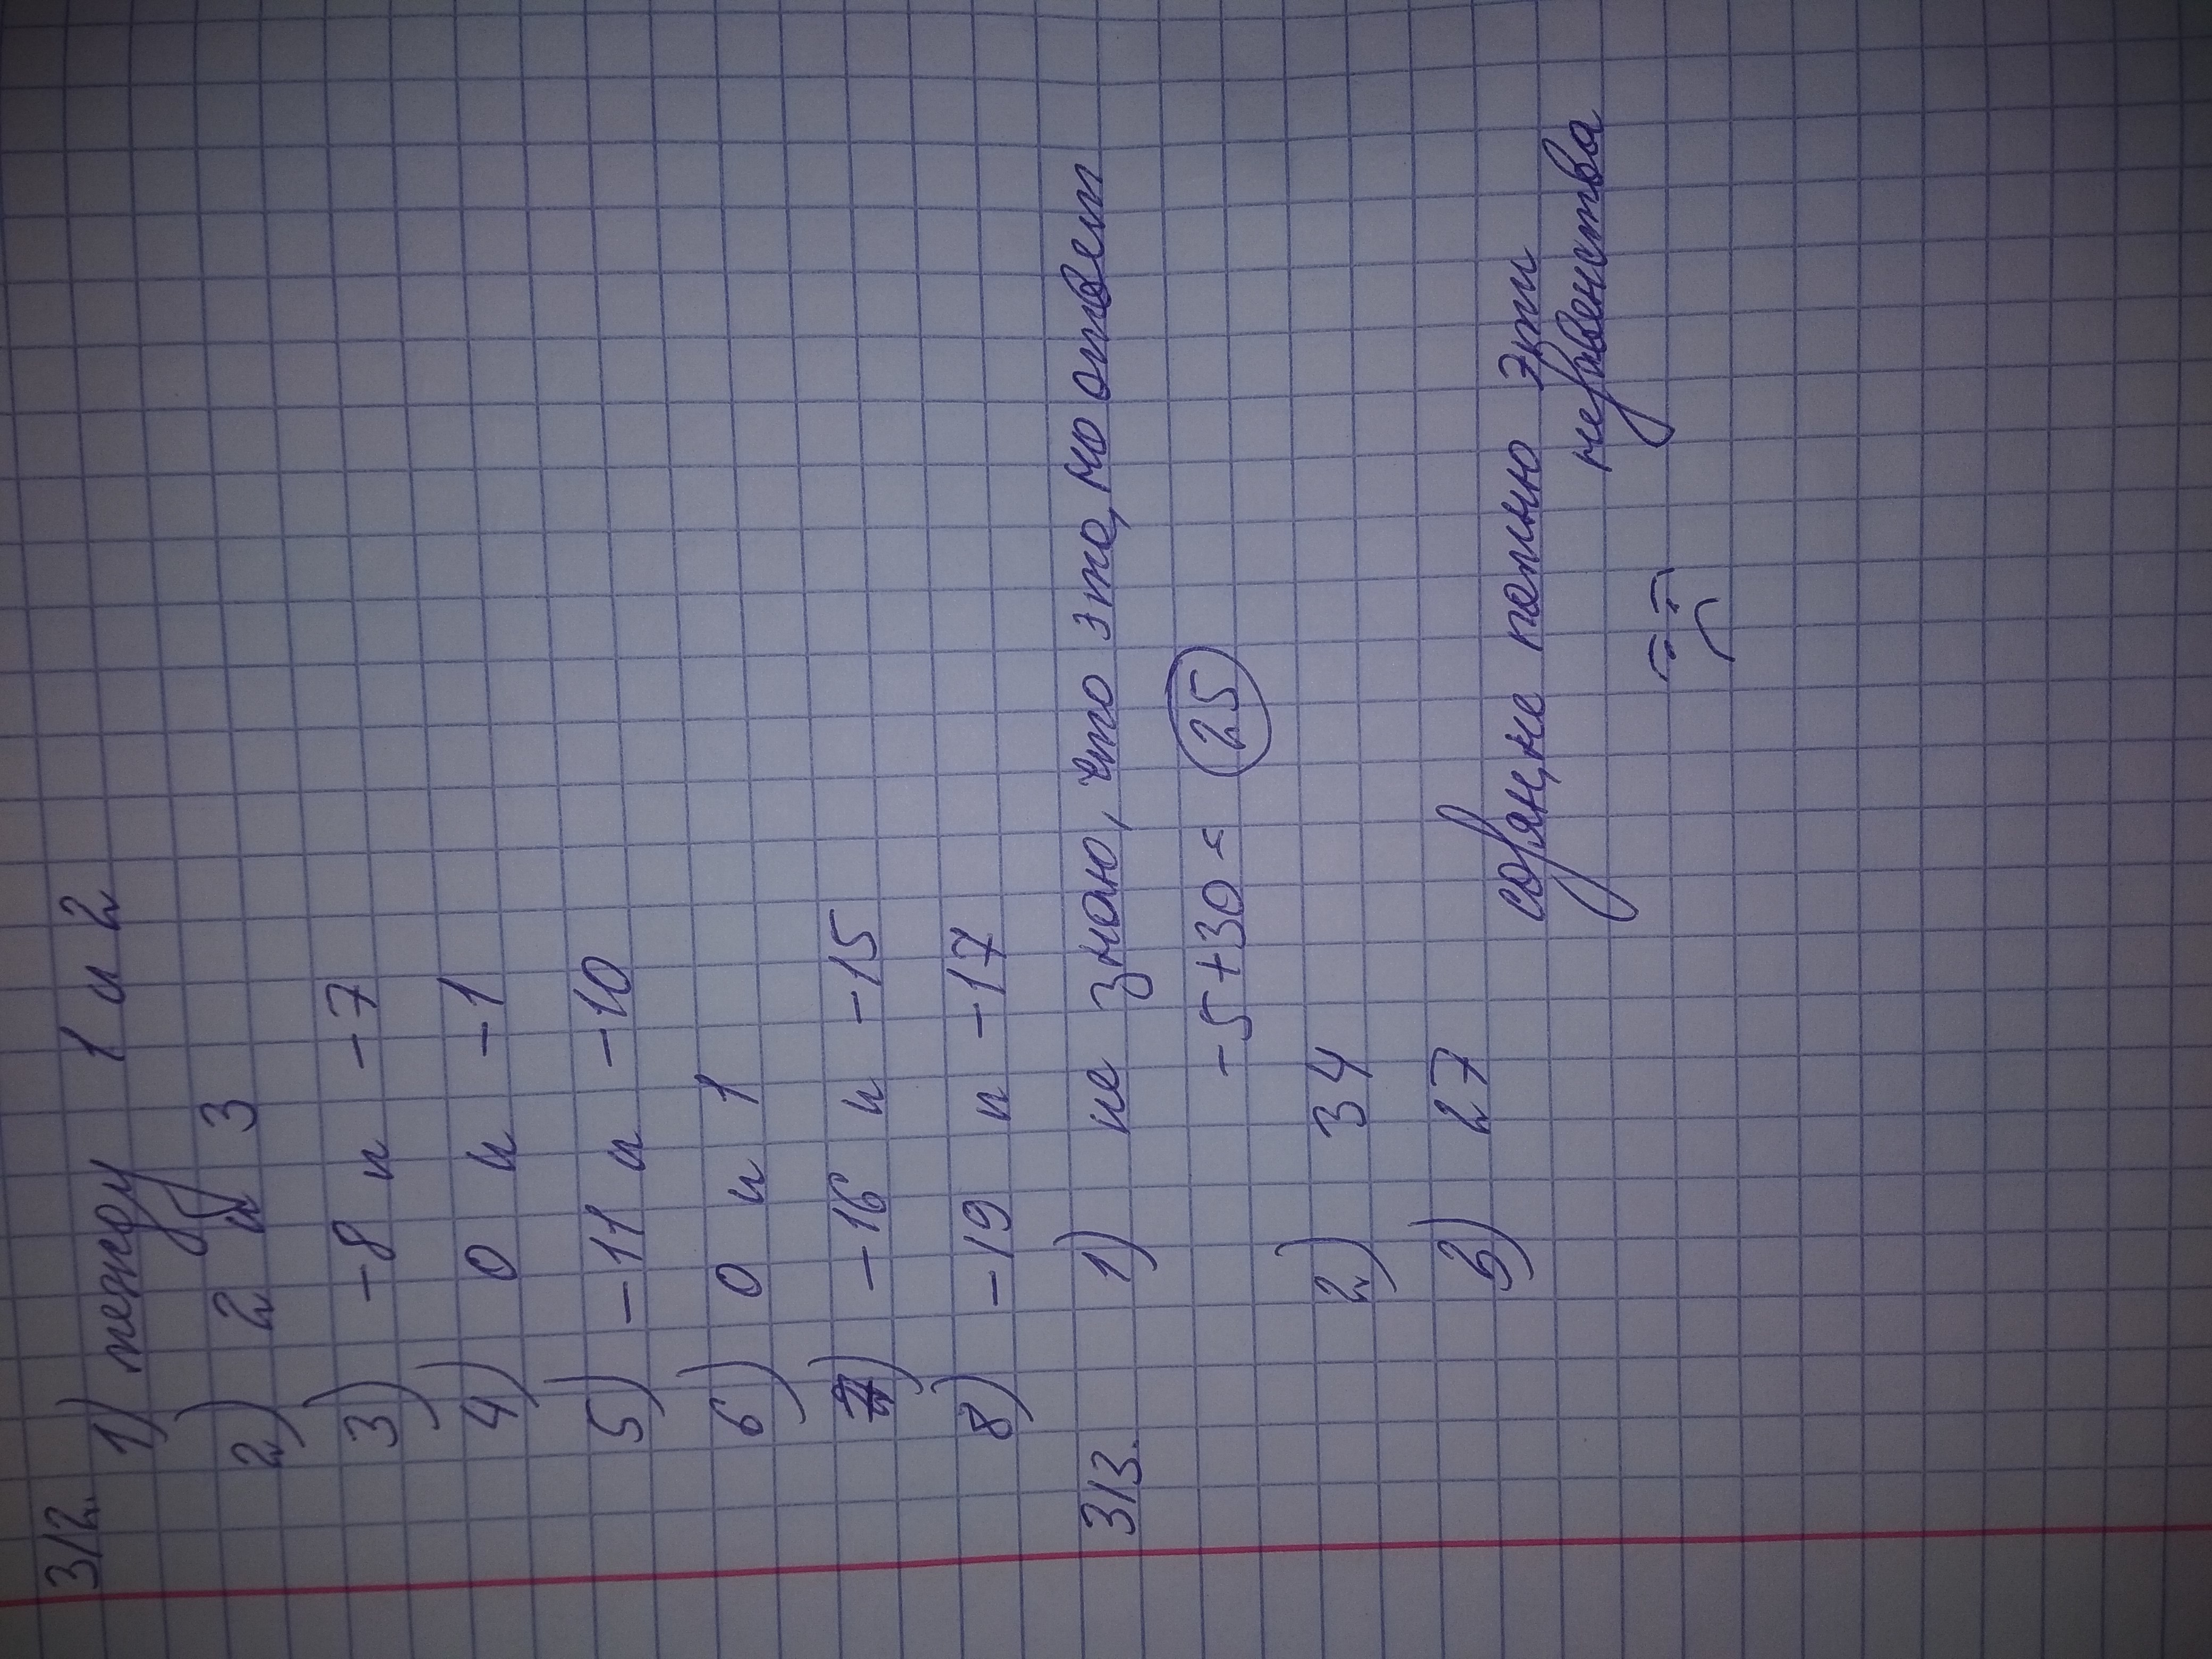 312. 1) между 1 и 2
2) 2 и 3
3) -8 и -7
4) 0 и -1
5) -11 и -10
6) 0 и 1
7) -16 и -15
8) -19 и -17
313. 1) не знаю, что это, но ответ
-5+30= 25
2) 34
3) 27
сорян, не помню эти
неравенства